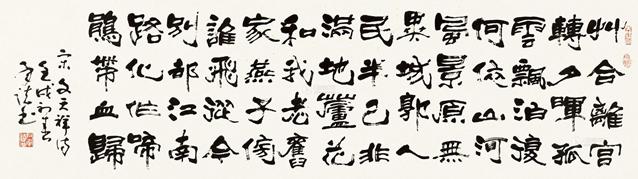 艸合離宮
轉夕暉孤
雲飄泊復
何依山河
風景原無
異城郭人
民半已非
滿地蘆花
和我老舊
家燕子傍
誰飛從今
別卻江南
路化作啼
鵑帶血歸
宋文天祥詩
壬戌初春